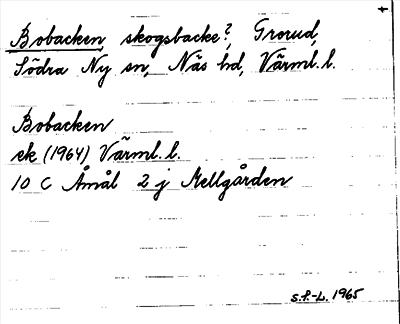 Bobacken, skogsbacke?, Grorud,
Södra Ny sn, Näs hd, Värml. l.
Bobacken
ek (1964) Värml. l.
10 C Åmål 2 j Mellgården
S.F.-L. 1965